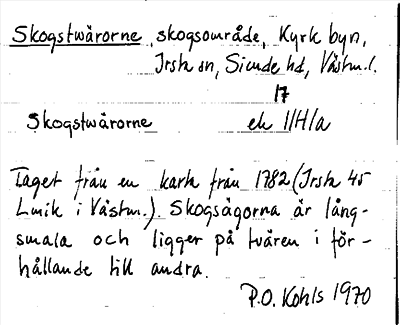 Skogstwärorne, skogsområde, Kyrkbyn,
Irsta sn, Siende hd, Västm.l.
17
Skogstwärorne ek 11/H/a
Taget från en karta från 1782 (Irsta 45
Lmik i Västm.). Skogsägorna är lång-
smala och ligger på tvären i för-
hållande till andra.
P.O. Kohls 1970